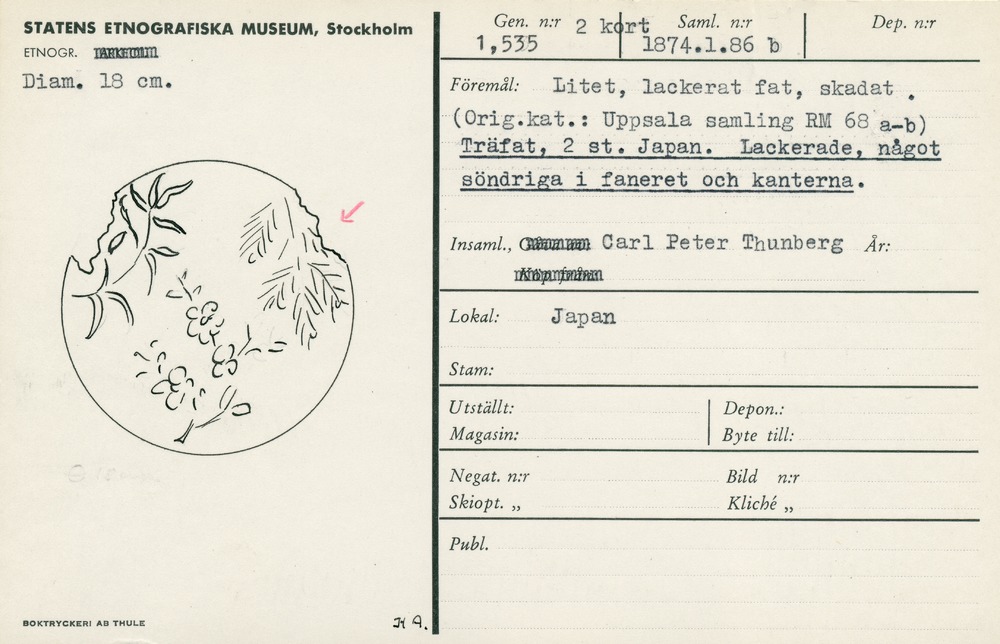 STATENS ETNOGRAFISKA MUSEUM, Stockholm
ETNOGR.
Diam. 18 cm.
BOKTRYCKERI AB THULE
H A.
Gen. n:r 2 kort Saml. n:r Dep. n:r
1,535 1874.1.86 b
Föremål: Litet, lackerat fat, skadat .
(Orig.kat.: Uppsala samling RM 68 a-b)
Träfat, 2 st. Japan. Lackerade, något
söndriga i faneret och kanterna.
Insaml., Carl Peter Thunberg År:
Lokal: Japan
Stam:
Utställt: Depon.:
Magasin: Byte till:
Negat. n:r Bild n:r
Skiopt. „ Kliché „
Publ.